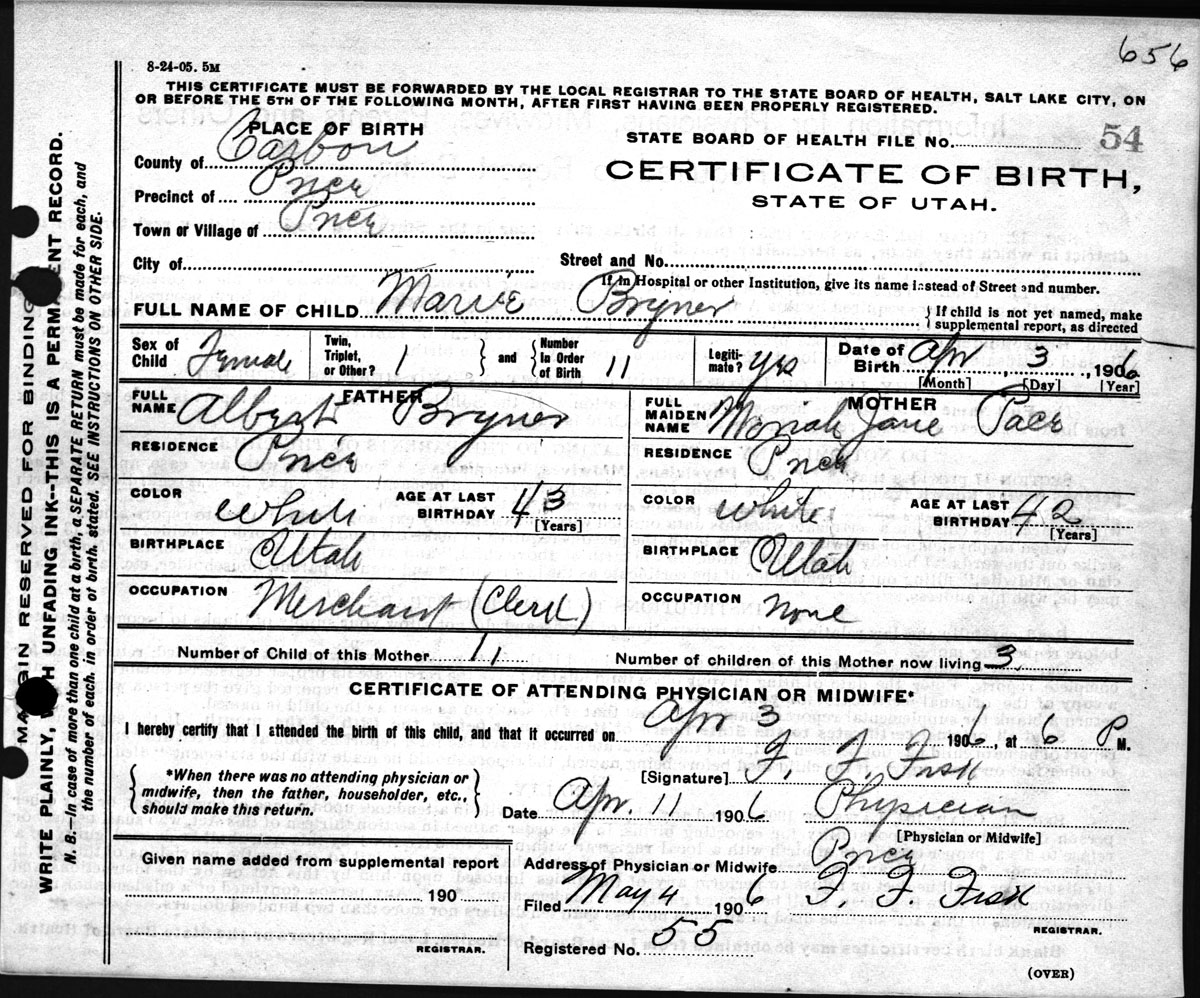 656
8-24-05. 5M
THIS CERTIFICATE MUST BE FORWARDED BY THE LOCAL REGISTRAR TO THE STATE BOARD OF HEALTH, SALT LAKE CITY, ON
OR BEFORE THE 5TH OF THE FOLLOWING MONTH, AFTER FIRST HAVING BEEN PROPERLY REGISTERED.
PLACE OF BIRTH
STATE BOARD OF HEALTH FILE NO. 54
County of Carbon
CERTIFICATE OF BIRTH,
Precinct of Price
STATE OF UTAH.
Town or Village of Price
City of
Street and No.
If in Hospital or other Institution, give its name instead of Street and number.
FULL NAME OF CHILD Marie Bryner { If child is not yet named, make
supplemental report, as directed
Sex of Child Female Twin, Triplet, or Other? 1 } and { Number In Order of Birth 11 Legitimate? yes Date of Birth Apr, 3, 1906
[Month] [Day] [Year]
FATHER
FULL NAME Albert Bryner
MOTHER
FULL MAIDEN NAME Moriah Jane Pace
RESIDENCE Price
RESIDENCE Price
COLOR White AGE AT LAST BIRTHDAY 43 [Years]
COLOR White AGE AT LAST BIRTHDAY 42 [Years]
BIRTHPLACE Utah
BIRTHPLACE Utah
OCCUPATION Merchant (Clerk)
OCCUPATION None
Number of Child of this Mother 11 Number of children of this Mother now living 3
CERTIFICATE OF ATTENDING PHYSICIAN OR MIDWIFE*
I hereby certify that I attended the birth of this child, and that it occurred on Apr 3 1906, at 6 P M.
{ *When there was no attending physician or
midwife, then the father, householder, etc.,
should make this return. }
[Signature] F. F. Fisk
Date Apr. 11 1906 Physician
[Physician or Midwife]
Given name added from supplemental report
190
REGISTRAR.
Address of Physician or Midwife Price
Filed May 4 1906 F F Fisk
REGISTRAR.
Registered No. 55
(OVER)
MARGIN RESERVED FOR BINDING
WRITE PLAINLY, WITH UNFADING INK--THIS IS A PERMANENT RECORD.
N. B.—In case of more than one child at a birth, a SEPARATE RETURN must be made for each, and
the number of each. in order of birth, stated. SEE INSTRUCTIONS ON OTHER SIDE.